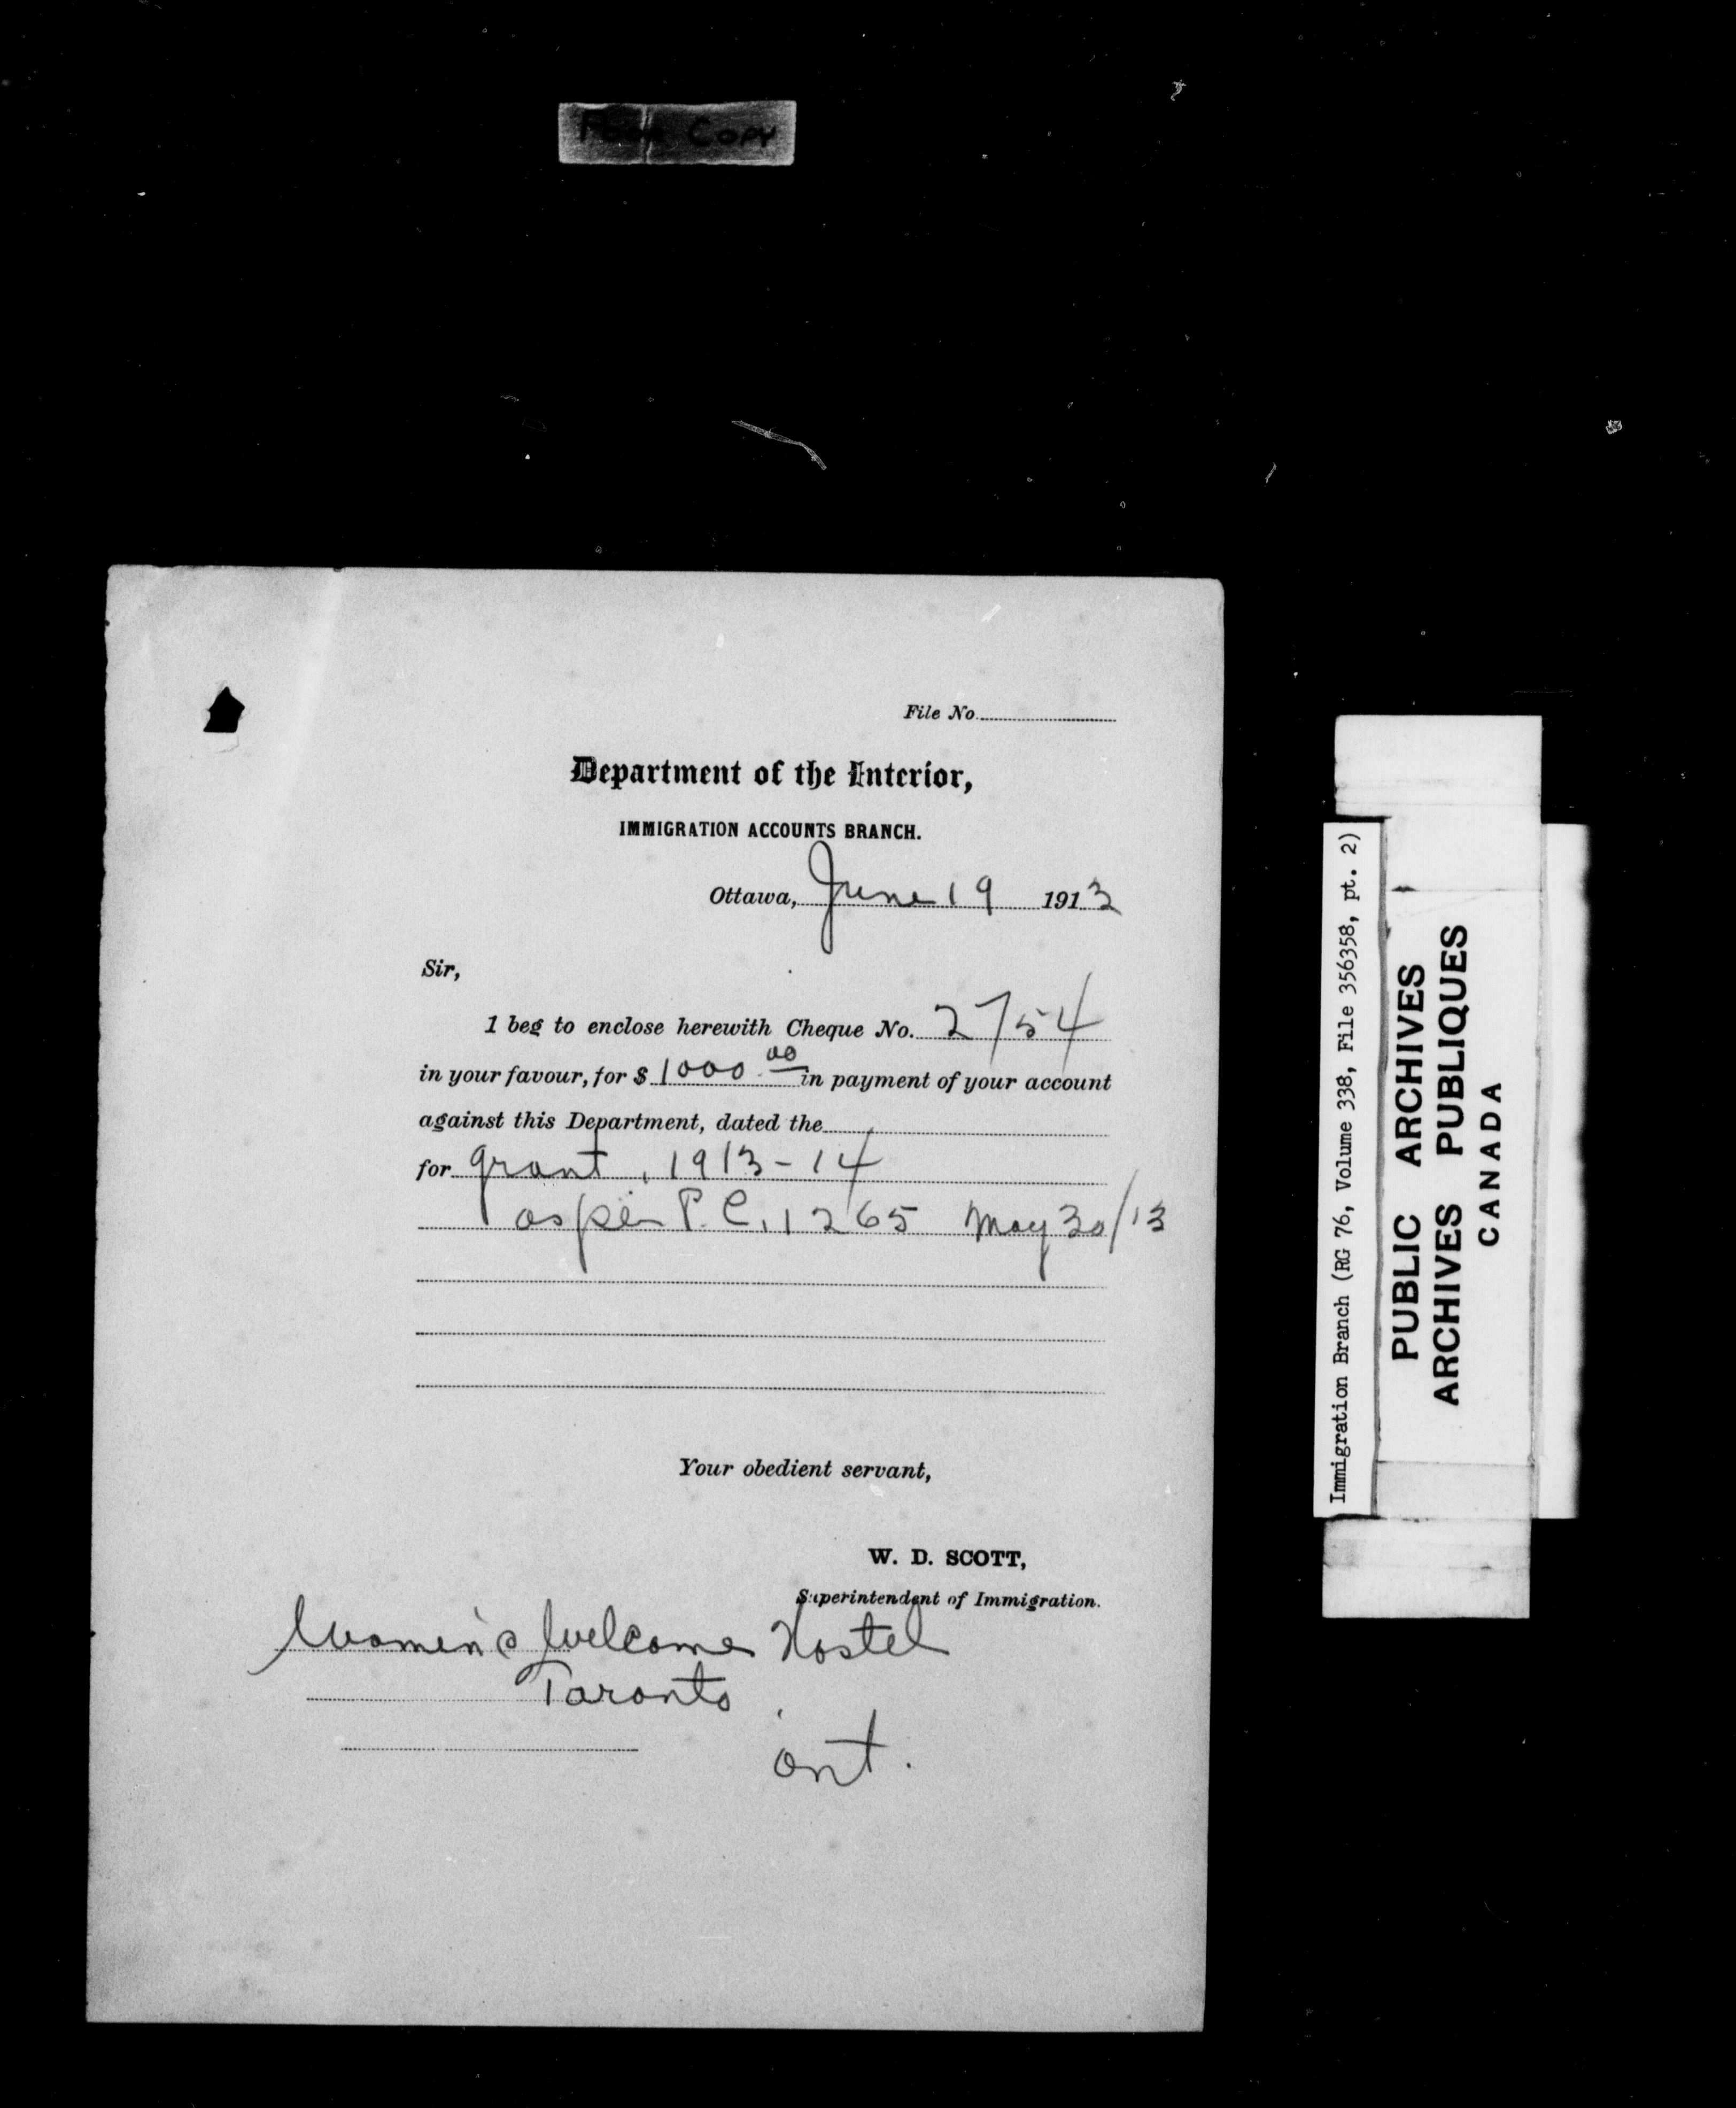 Copy
File No.
Department of the Interior,
IMMIGRATION ACCOUNTS BRANCH.
Ottawa, June 19 1913
Sir,
I beg to enclose herewith Cheque No. 2754
in your favour, for $ 1000 00 in payment of your account
against this Department, dated the
for grant, 1913-14
as per P.C. 1265 May 30/13
Your obedient servant,
W. D. SCOTT,
Superintendent of Immigration.
Women's Welcome Hostel
Toronto
Ont.
Immigration Branch (RG 76, Volume 338, File 356358, pt. 2)
PUBLIC ARCHIVES
ARCHIVES PUBLIQUES
CANADA